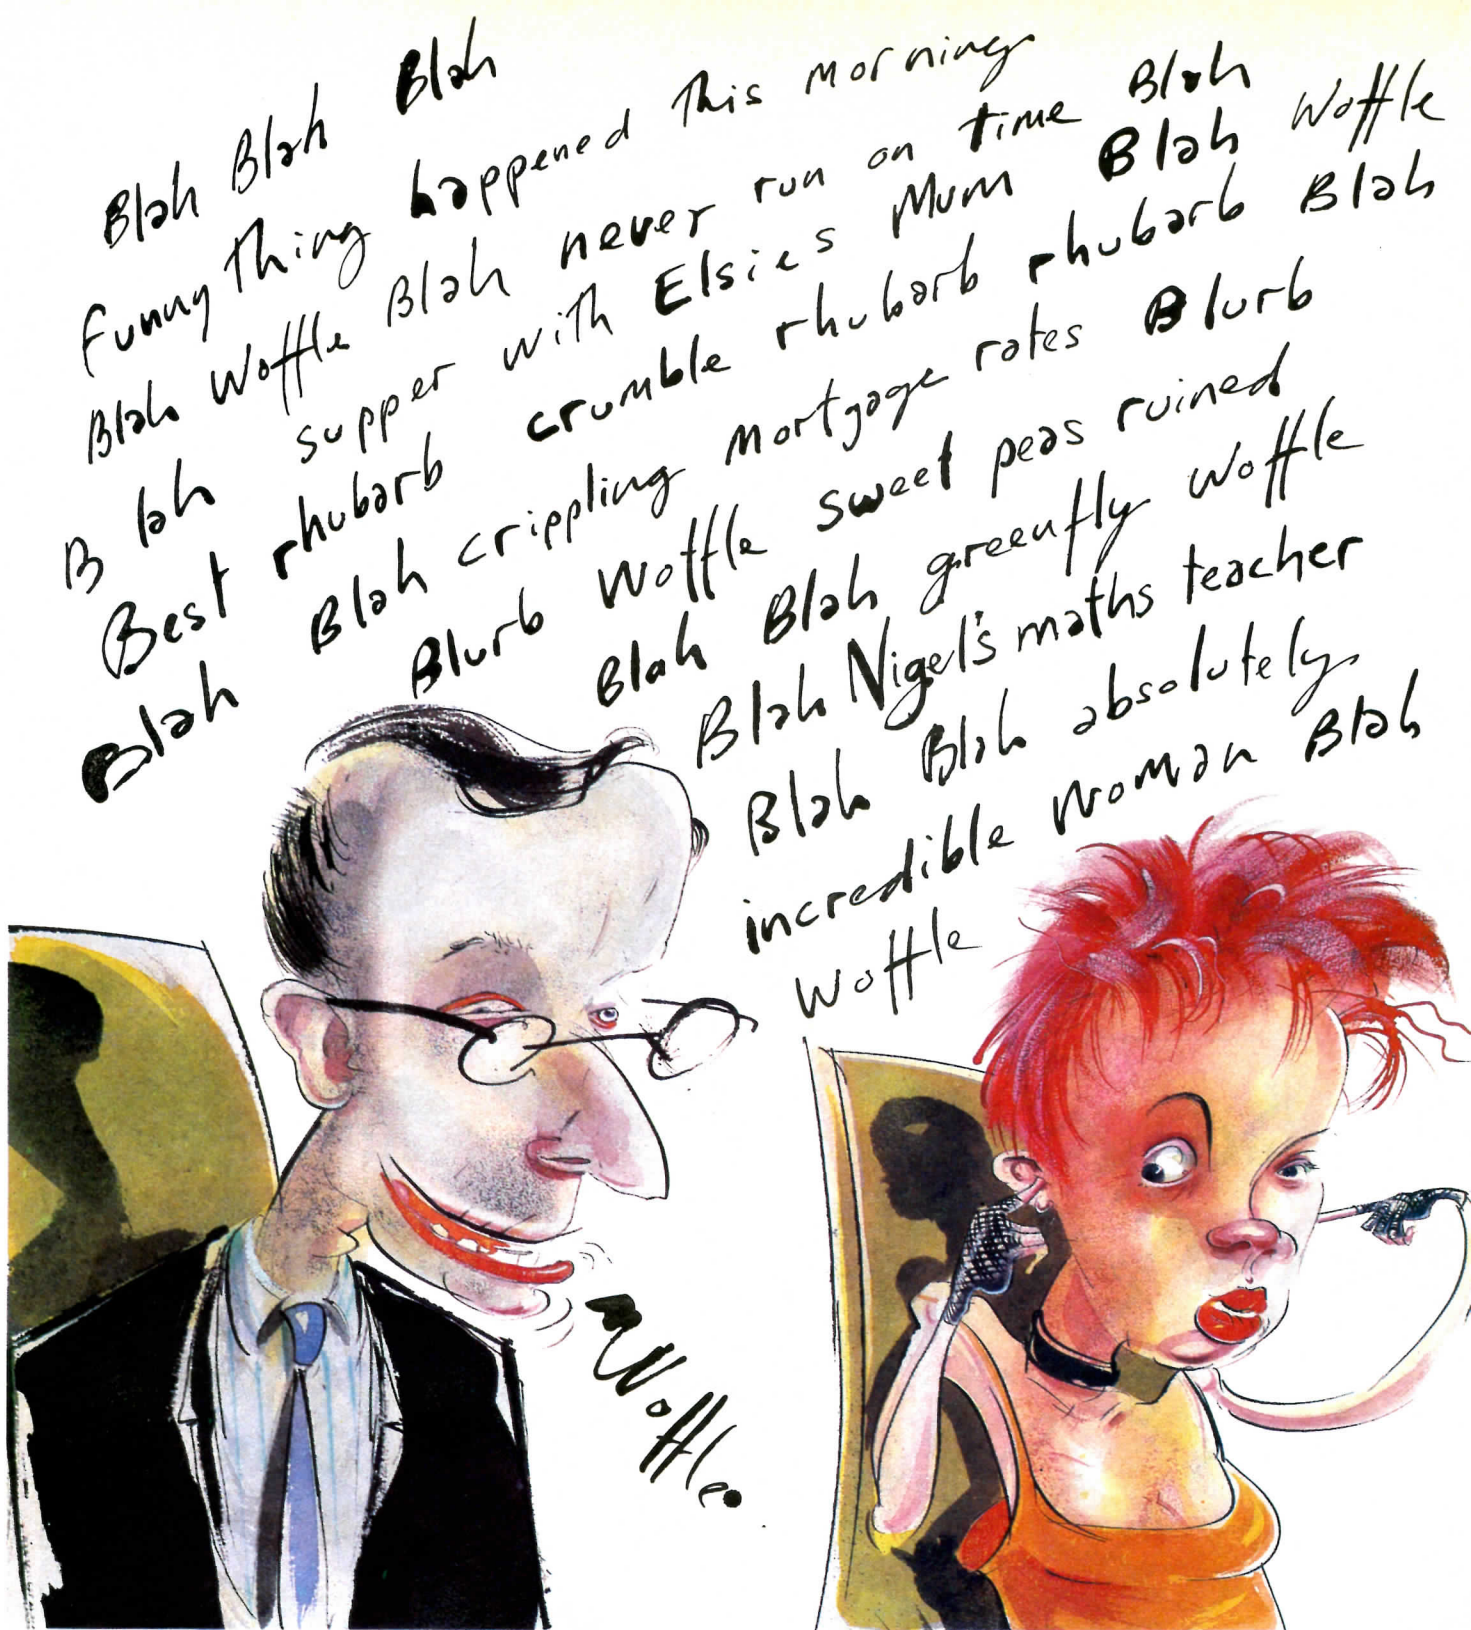 Blah Blah Blah
funny thing happened this morning
Blah Woffle Blah never run on time Blah
Blah supper with Elsies Mum Blah Woffle
Best rhubarb crumble rhubarb rhubarb Blah
Blah Blah crippling mortgage rates Blurb
Blurb Woffle sweet peas ruined
Blah Blah greenfly Woffle
Blah Nigel's maths teacher
Blah Blah absolutely
incredible woman Blah
Woffle
Woffle